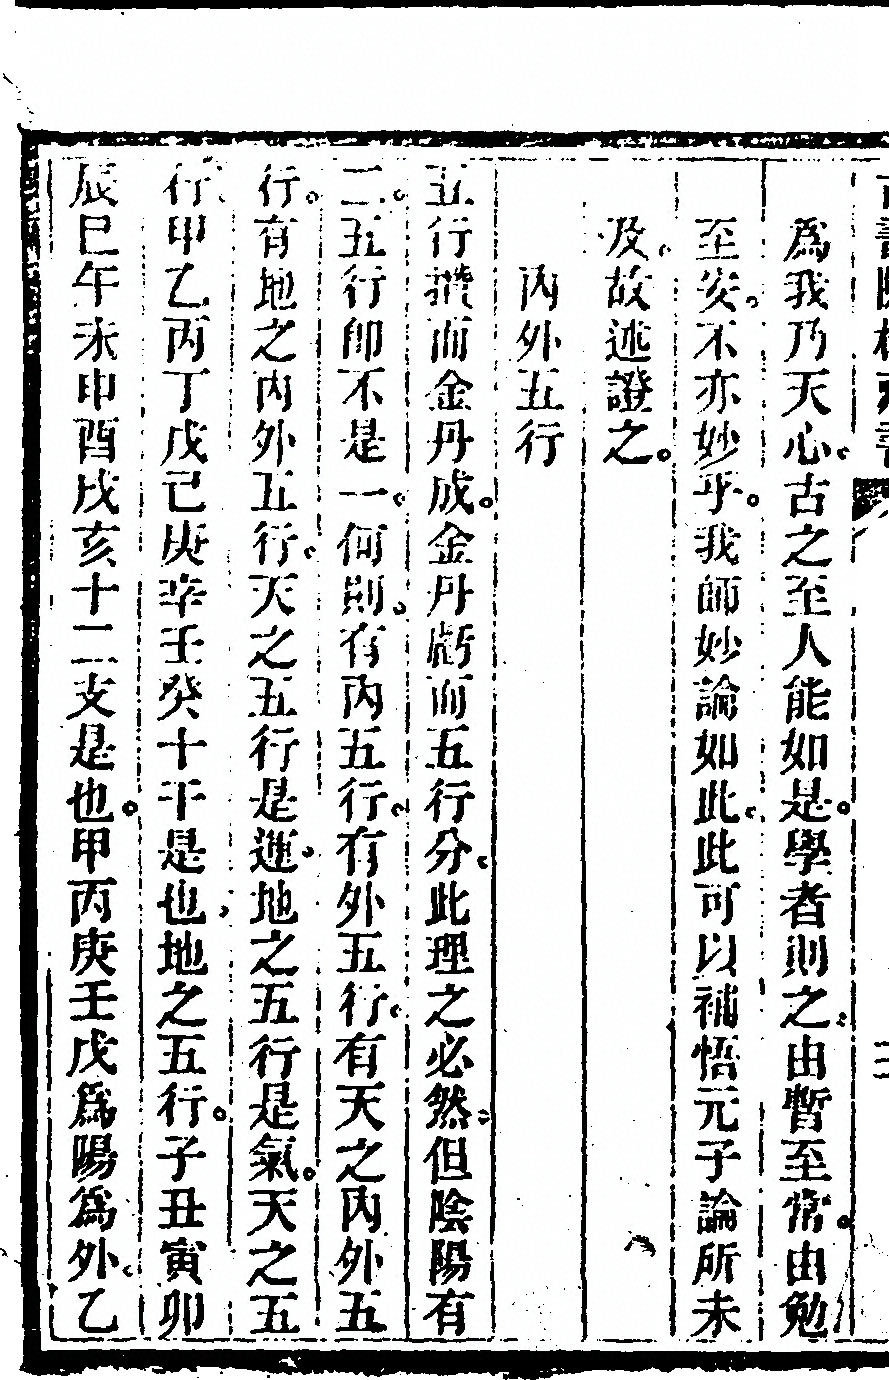 爲我乃天心。古之至人能如是。學者則之。由暫至常。由勉
至安。不亦妙乎。我師妙論如此。此可以補悟元子論所未
及。故述證之。
內外五行
五行攢而金丹成。金丹虧而五行分。此理之必然。但陰陽有
二。五行卽不是一。何則。有內五行。有外五行。有天之內外五
行。有地之內外五行。天之五行是運。地之五行是氣。天之五
行。甲乙丙丁戊己庚辛壬癸十干是也。地之五行。子丑寅卯
辰巳午未申酉戌亥十二支是也。甲丙庚壬戊爲陽爲外。乙